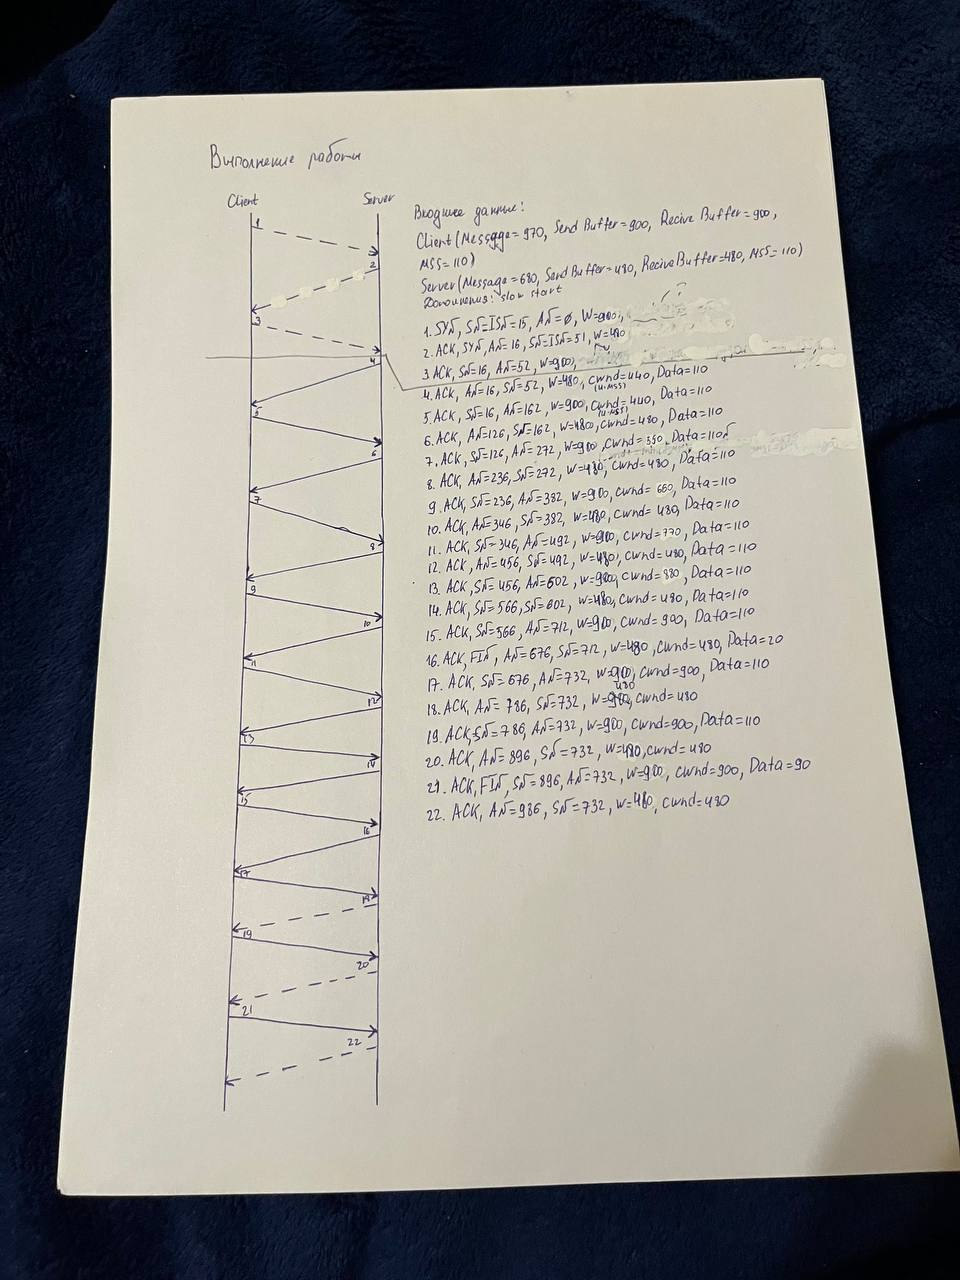 Выполнение работы
Client
Server
Входные данные:
Client (Message = 970, Send Buffer = 900, Recive Buffer = 900,
MSS = 110)
Server (Message = 680, Send Buffer = 480, Recive Buffer = 480, MSS = 110)
Дополнения: slow start
1. SYN, SN=ISN=15, AN=0, W=900,
2. ACK, SYN, AN=16, SN=ISN=51, W=480
3 ACK, SN=16, AN=52, W=900,
4. ACK, AN=16, SN=52, W=480, cwnd=440, Data=110
(4·MSS)
5. ACK, SN=16, AN=162, W=900, cwnd=440, Data=110
(4·MSS)
6. ACK, AN=126, SN=162, W=480, cwnd=480, Data=110
7. ACK, SN=126, AN=272, W=900, cwnd=550, Data=110
8. ACK, AN=236, SN=272, W=480, cwnd=480, Data=110
9. ACK, SN=236, AN=382, W=900, cwnd=660, Data=110
10. ACK, AN=346, SN=382, W=480, cwnd=480, Data=110
11. ACK, SN=346, AN=492, W=900, cwnd=770, Data=110
12. ACK, AN=456, SN=492, W=480, cwnd=480, Data=110
13. ACK, SN=456, AN=602, W=900, cwnd=880, Data=110
14. ACK, SN=566, SN=602, W=480, cwnd=480, Data=110
15. ACK, SN=566, AN=712, W=900, cwnd=900, Data=110
16. ACK, FIN, AN=676, SN=712, W=480, cwnd=480, Data=20
17. ACK, SN=676, AN=732, W=900, cwnd=900, Data=110
480
18. ACK, AN=786, SN=732, W=900, cwnd=480
19. ACK, SN=786, AN=732, W=900, cwnd=900, Data=110
20. ACK, AN=896, SN=732, W=480, cwnd=480
21. ACK, FIN, SN=896, AN=732, W=900, cwnd=900, Data=90
22. ACK, AN=986, SN=732, W=480, cwnd=480
1
2
3
4
5
6
7
8
9
10
11
12
13
14
15
16
17
19
20
21
22